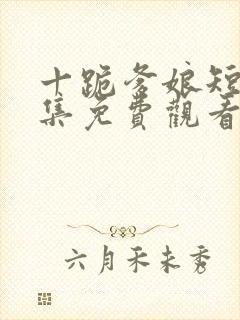 十跪爹娘短
集免費觀看
六月禾未秀